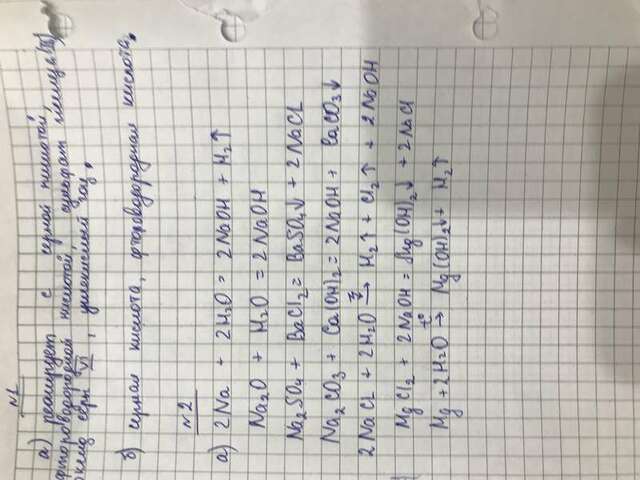 №1
а) реагирует с серной кислотой,
фтороводородной кислотой, сульфат железа (III)
оксид серы VI, углекислый газ.
б) серная кислота, фтороводородная кислота.
№2
а) 2Na + 2H₂O = 2NaOH + H₂↑
Na₂O + H₂O = 2NaOH
Na₂SO₄ + BaCl₂ = BaSO₄↓ + 2NaCl
Na₂CO₃ + Ca(OH)₂ = 2NaOH + CaCO₃↓
2NaCl + 2H₂O → H₂↑ + Cl₂↑ + 2NaOH
MgCl₂ + 2NaOH = Mg(OH)₂↓ + 2NaCl
Mg + 2H₂O →t° Mg(OH)₂↓ + H₂↑